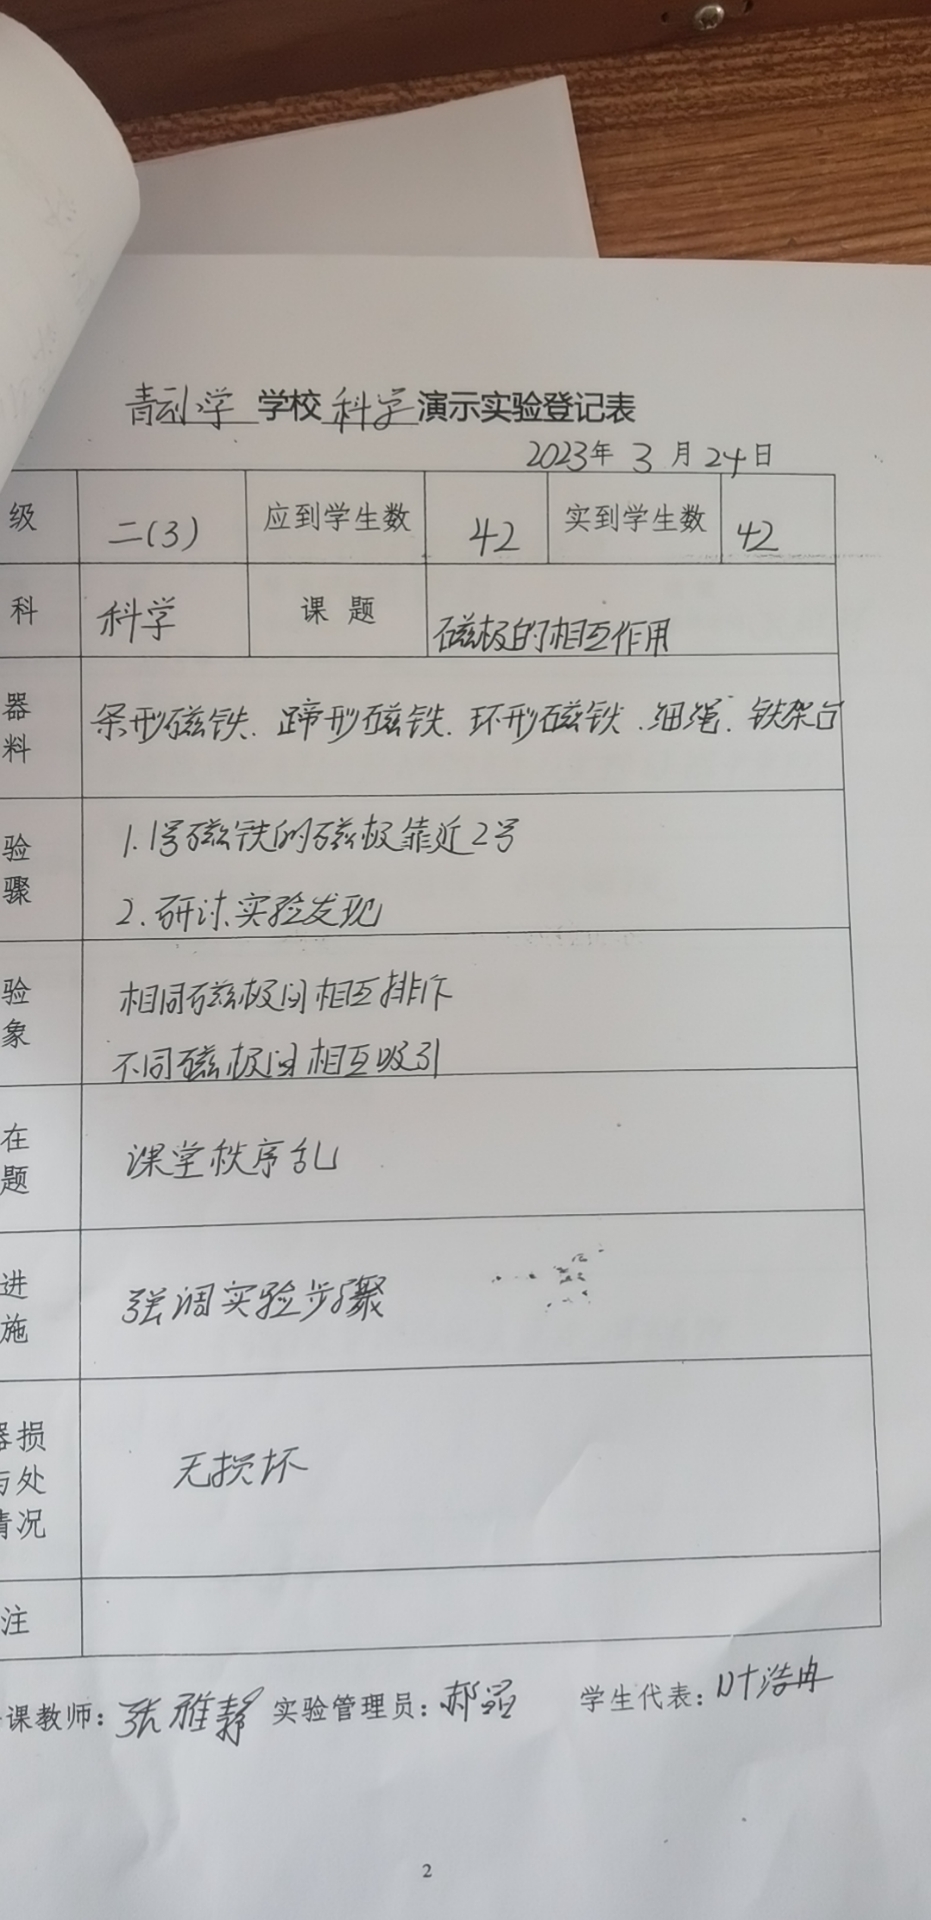 青云小学 学校 科学 演示实验登记表
2023年 3 月 24 日
级 二(3) 应到学生数 42 实到学生数 42
科 科学 课 题 磁极的相互作用
器
料
条形磁铁. 蹄形磁铁. 环形磁铁. 细绳. 铁架台
验
骤
1. 1号磁铁的磁极靠近2号
2. 研讨实验发现
验
象
相同磁极间相互排斥
不同磁极间相互吸引
在
题
课堂秩序乱
进
施
强调实验步骤
器损
与处
情况
无损坏
注
课教师: 张雅静 实验管理员: 郝 学生代表: 叶浩冉
2